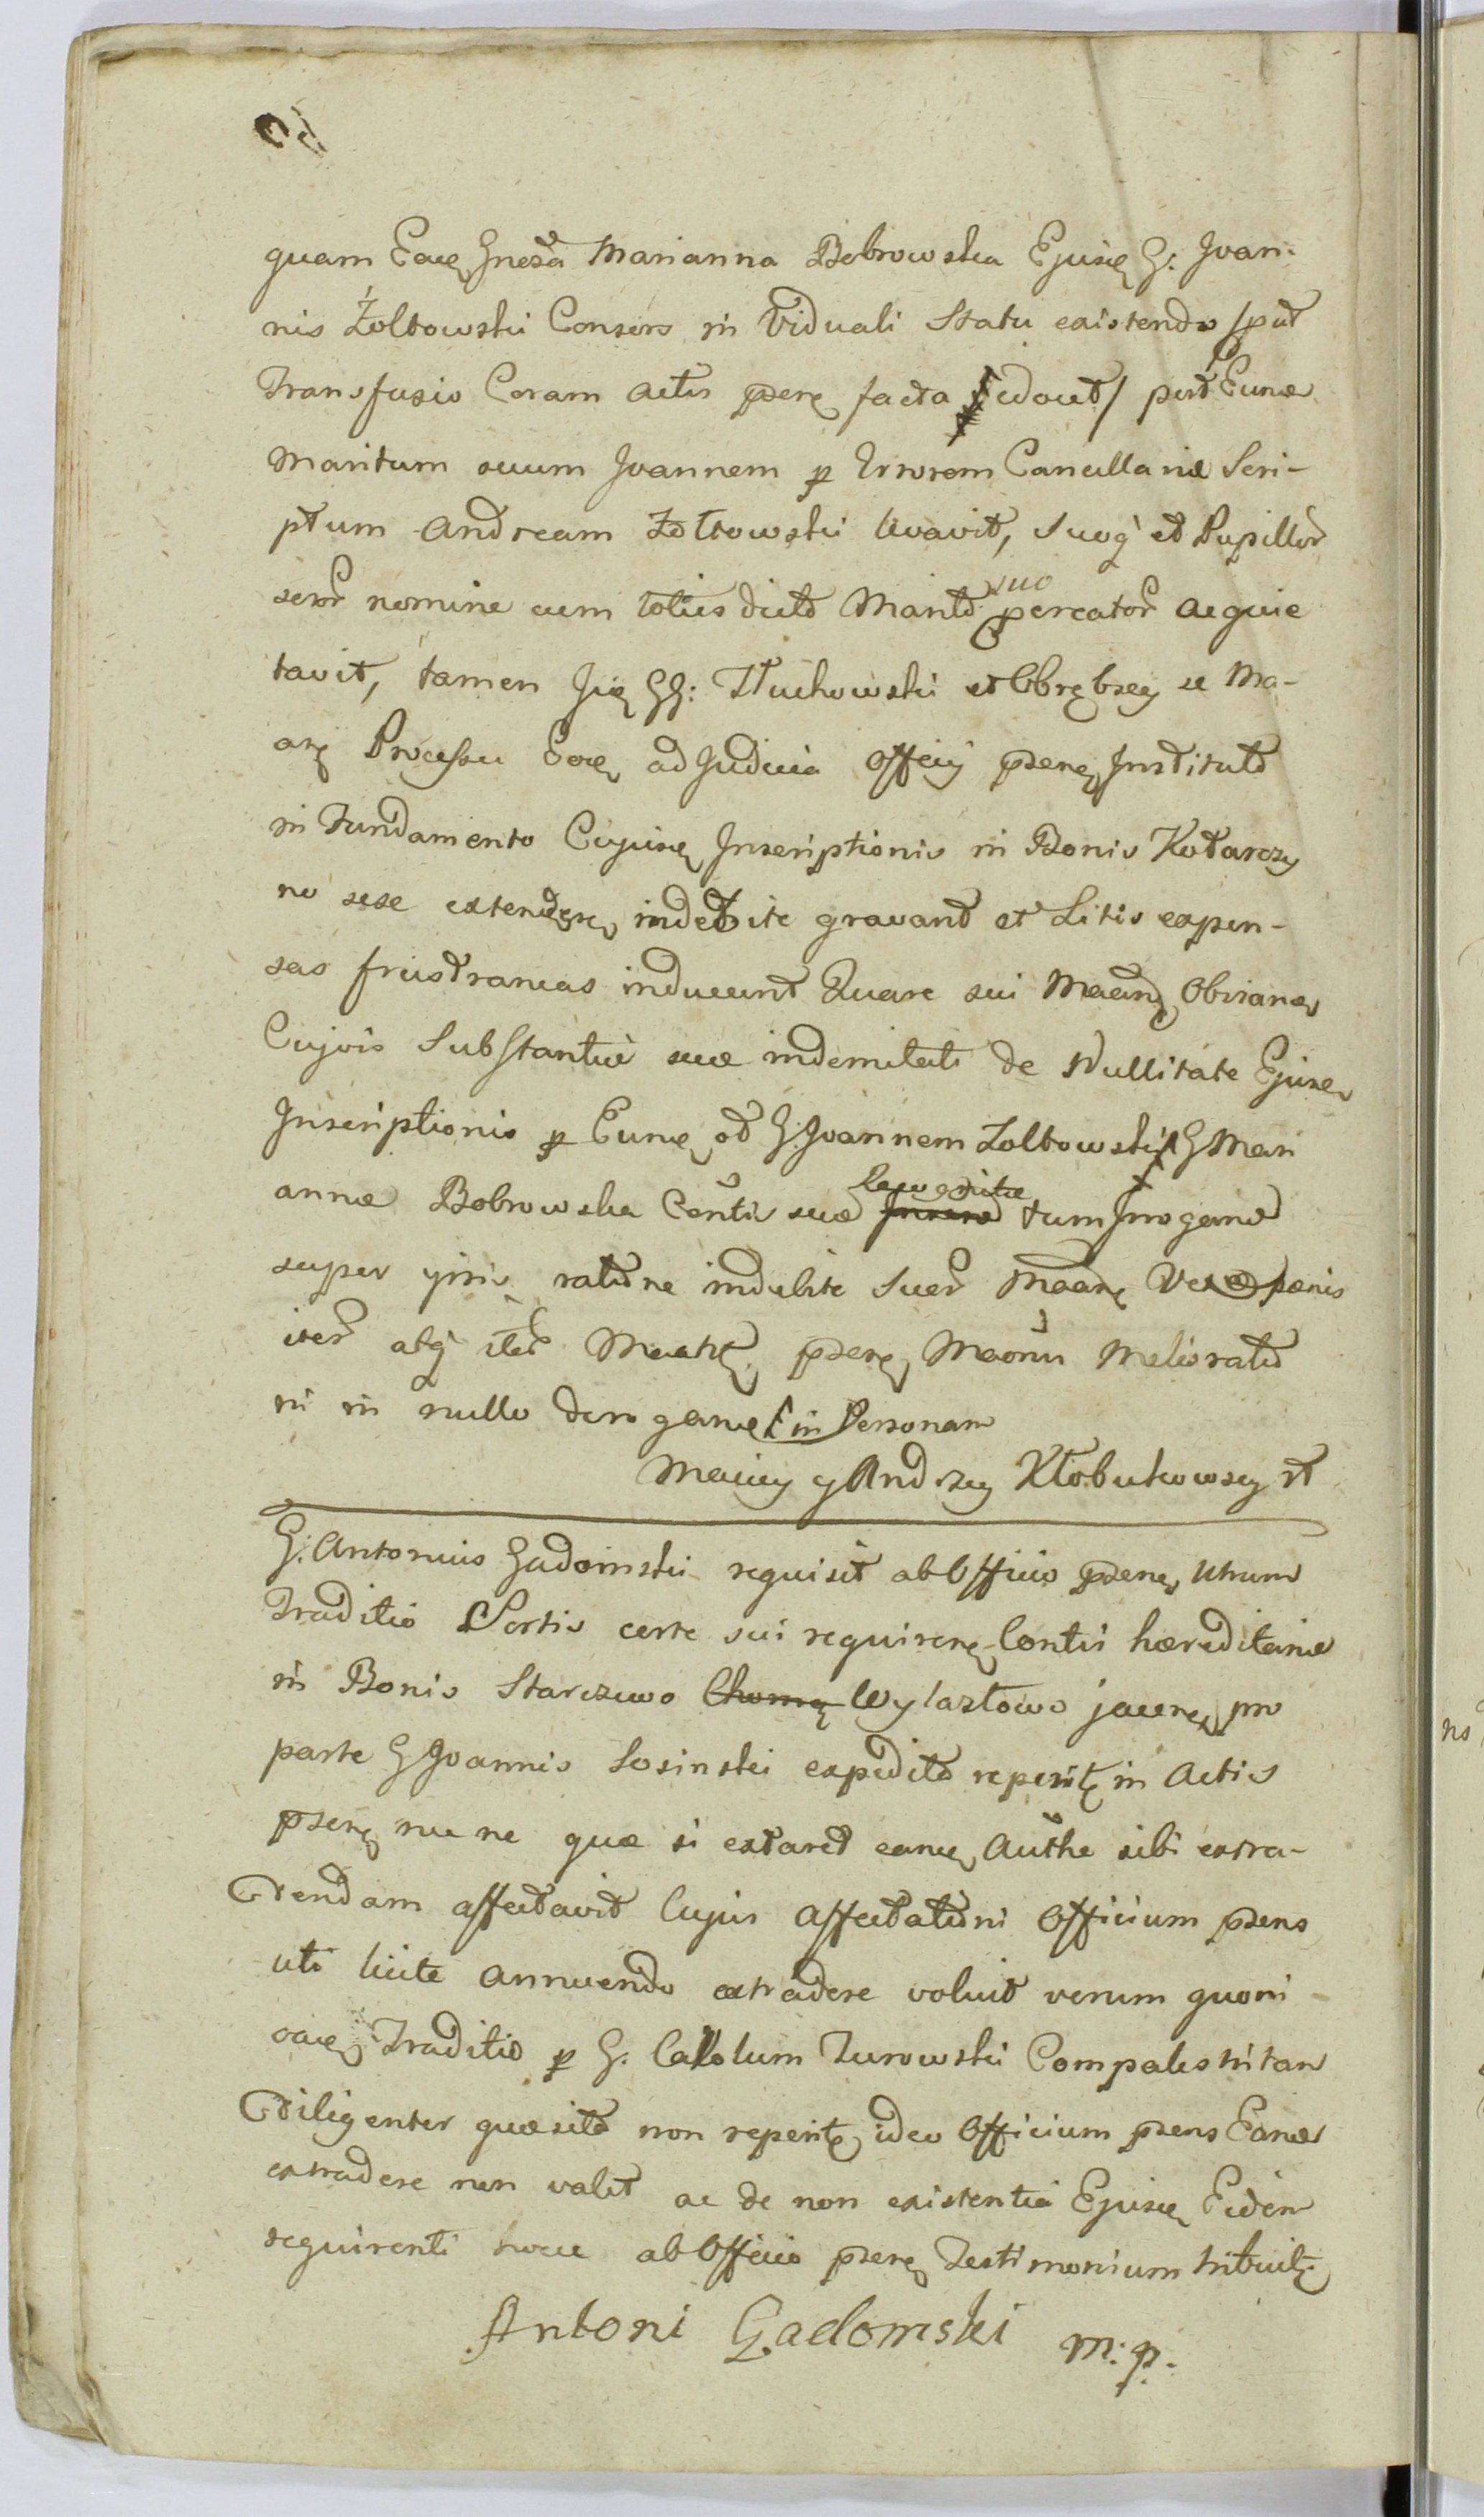 quam Eaḿę Gnesa Marianna Bobrowska Ejusę G: Joan-
nis Żołtowski Consors in Viduali Statu existendo /put
Transfusio Coram Actis psenę facta edocet/ post Eunde
Maritum suum Joannem p Errorem Cancellariæ Scri-
ptum Andream Żołtowski levavit, Suoq et Pupillor
seror nomine eum totius dictd Maritd suo percator acquie
tavit, tamen Jię GG: Tłuchowski et Obrębscy se Ma-
arę Processu Eoḿę ad Judicia Officij psenę Institutd
in Fundamento Cujusę Inscriptionis in Bonis Kotarczy
no sese extendere, indebite gravant et Litis expen-
sas frustraneas inducunt Quare sui Maanę Obviane
Cujvis Substantiæ suæ indemitati de Nullitate Ejusę
Inscriptionis p Eunę od G: Joannem Zołtowski G Mari
annæ Bobrowska Conti suæ tum Irrogand
super ipsis ratione indebite Suer Maanę Vexæ pænis
iter atq iter Maatę psenę Maoni Melioratio
ni in nullo derogane in Personam
Maciey y Andrzey Kłobukowscy st
G: Antonius Gadomski requisit ab Officio psenę, utrum
Traditio Sortis certe sui requirenę Contis hæreditariæ
in Bonis Starczewo Chomę Wylazłowo jacenę, pro
parte G Joannis Losinski expedita reperitę in Actis
psenę nec ne quæ si extaret eanę, Authe sibi extra-
dendam affectavit Cujus Affectationi Officium psens
uti licite annuendo extradere voluit verum quoni-
aḿę Traditio p G. Carolum Turowski Compalestritan
diligenter quæsita non reperitę ideo Officium psens Eande
extradere non valet ac de non existentia Ejusę Eidem
requirenti ab Officio psenę Testimonium tribuitę
Antoni Gadomski m:p.